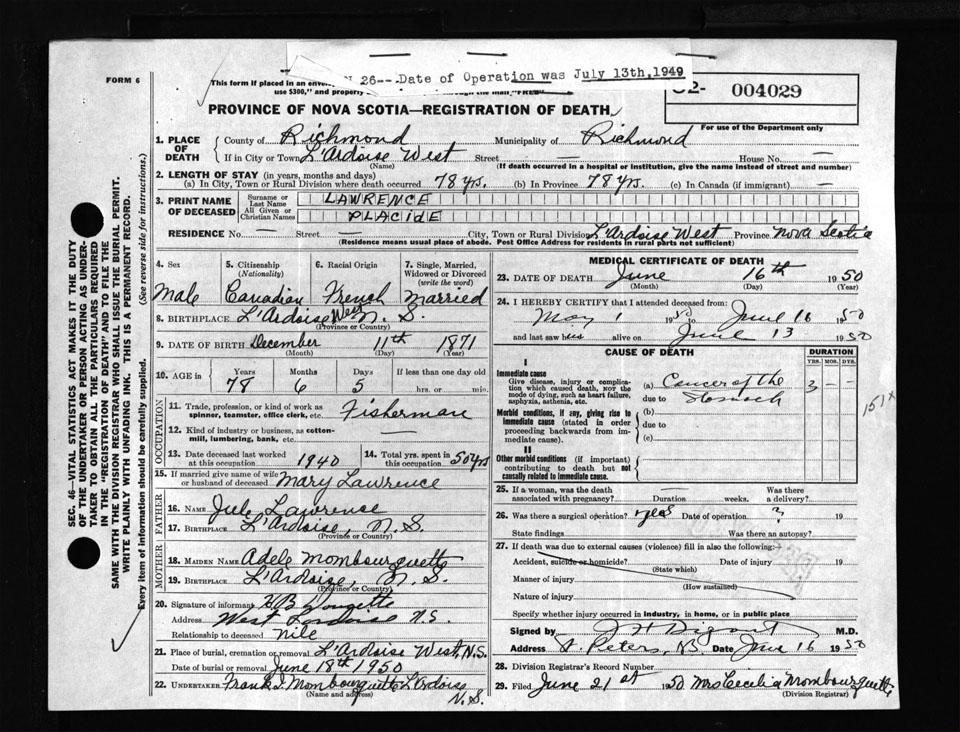 N 26-- Date of Operation was July 13th, 1949
FORM 6
This form if placed in an enve
use $300," and property through the mail, "FREE"
PROVINCE OF NOVA SCOTIA—REGISTRATION OF DEATH
004029
For use of the Department only
1. PLACE OF DEATH
County of Richmond Municipality of Richmond
If in City or Town L'Ardoise West Street — House No. —
(Name) (If death occurred in a hospital or institution, give the name instead of street and number)
2. LENGTH OF STAY (in years, months and days)
(a) In City, Town or Rural Division where death occurred 78 yrs. (b) In Province 78 yrs. (c) In Canada (if immigrant) —
3. PRINT NAME OF DECEASED
Surname or Last Name LAWRENCE
All Given or Christian Names PLACIDE
RESIDENCE No. — Street — City, Town or Rural Division L'Ardoise West Province Nova Scotia
(Residence means usual place of abode. Post Office Address for residents in rural parts not sufficient)
4. Sex 5. Citizenship (Nationality) 6. Racial Origin 7. Single, Married, Widowed or Divorced (write the word)
Male Canadian French Married
8. BIRTHPLACE L'Ardoise West N. S.
(Province or Country)
9. DATE OF BIRTH December 11th 1871
(Month) (Day) (Year)
10. AGE in Years Months Days If less than one day old
78 6 5 hrs. or min.
OCCUPATION
11. Trade, profession, or kind of work as spinner, teamster, office clerk, etc. Fisherman
12. Kind of industry or business, as cotton-mill, lumbering, bank, etc. —
13. Date deceased last worked at this occupation 1940 14. Total yrs. spent in this occupation 50 yrs
15. If married give name of wife or husband of deceased Mary Lawrence
FATHER
16. Name Jule Lawrence
17. Birthplace L'Ardoise, N. S.
(Province or Country)
MOTHER
18. Maiden Name Adele Mombourquette
19. Birthplace L'Ardoise, N. S.
(Province or Country)
20. Signature of informant
Address West Lardoise N.S.
Relationship to deceased Nile
21. Place of burial, cremation or removal L'Ardoise West, N.S.
Date of burial or removal June 18th 1950
22. UNDERTAKER Frank I. Mombourquette L'Ardoise
(Name and address) N.S.
MEDICAL CERTIFICATE OF DEATH
23. DATE OF DEATH June 16th 1950
(Month) (Day) (Year)
24. I HEREBY CERTIFY that I attended deceased from:
May 1 1950 to June 16 1950
and last saw him alive on June 13 1950
CAUSE OF DEATH DURATION
YRS. MOS. DYS.
I
Immediate cause
Give disease, injury or complication which caused death, not the mode of dying, such as heart failure, asphyxia, asthenia, etc.
(a) Cancer of the 3 — —
due to Stomach
151X
Morbid conditions, if any, giving rise to immediate cause (stated in order proceeding backwards from immediate cause).
(b)
due to
(c)
II
Other morbid conditions (if important) contributing to death but not causally related to immediate cause.
25. If a woman, was the death associated with pregnancy? — Duration weeks. Was there a delivery?
26. Was there a surgical operation? yes Date of operation ? 19
State findings Was there an autopsy?
27. If death was due to external causes (violence) fill in also the following:
Accident, suicide or homicide? Date of injury 19
(State which)
Manner of injury
(How sustained)
Nature of injury
Specify whether injury occurred in industry, in home, or in public place
Signed by M.D.
Address St. Peters, Date June 16 1950
28. Division Registrar's Record Number
29. Filed June 21st 1950 Mrs Cecilia Mombourquette
(Division Registrar)
SEC. 46—VITAL STATISTICS ACT MAKES IT THE DUTY
OF THE UNDERTAKER OR PERSON ACTING AS UNDERTAKER TO OBTAIN ALL THE PARTICULARS REQUIRED
IN THE "REGISTRATION OF DEATH" AND TO FILE THE
SAME WITH THE DIVISION REGISTRAR WHO SHALL ISSUE THE BURIAL PERMIT.
WRITE PLAINLY WITH UNFADING INK. THIS IS A PERMANENT RECORD.
Every item of information should be carefully supplied. (See reverse side for instructions.)